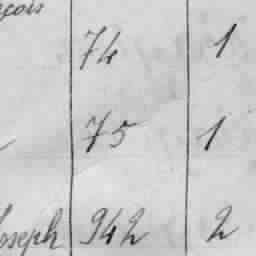 çois
74 1
75 1
Joseph 942 2